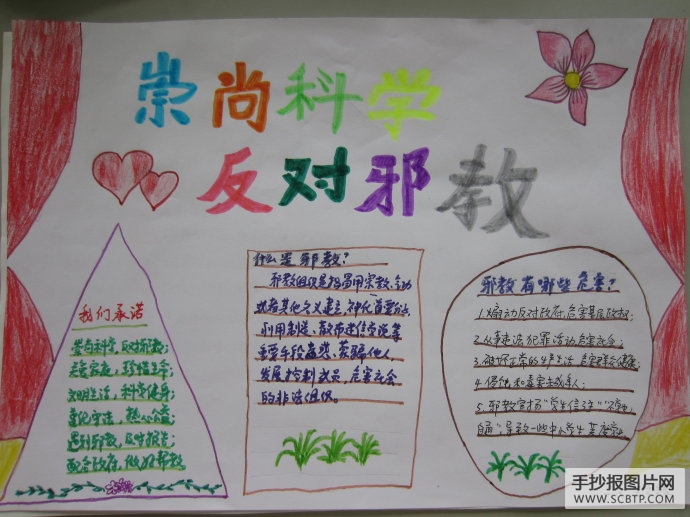 崇尚科学
反对邪教
我们承诺
崇尚科学，反对邪教；
关爱家庭，珍惜生命；
文明生活，科学健身；
遵纪守法，热心公益；
遇到邪教，及时报告；
配合政府，做好帮教
什么是邪教？
邪教组织是指冒用宗教、气功
或者其他名义建立，神化首要分子，
利用制造、散布迷信邪说等
主要手段蛊惑、蒙骗他人，
发展控制成员，危害社会
的非法组织。
邪教有哪些危害？
1.煽动反对政府，危害基层政权；
2.从事违法犯罪活动危害社会；
3.破坏正常的生产生活，危害身心健康；
4.侵蚀和毒害未成年人；
5.邪教宣扬"学生信了主"
自通"，导致一些中小学生
手抄报图片网
WWW.SCBTP.COM